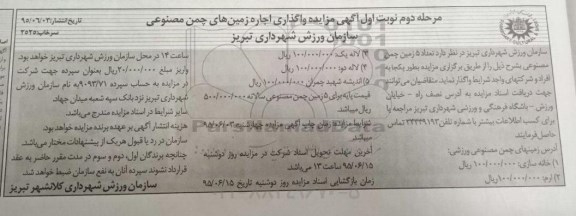 مرحله دوم نوبت اول آگهی مزایده واگذاری اجاره زمین‌های چمن مصنوعی
سازمان ورزش شهرداری تبریز
تاریخ انتشار: ۹۵/۰۶/۰۳
سرخاب ۲۵۲۵
سازمان ورزش شهرداری تبریز در نظر دارد تعداد ۵ زمین چمن
مصنوعی بشرح ذیل را از طریق برگزاری مزایده بطور یکجا به
افراد و شرکتهای واجد شرایط واگذار نماید. متقاضیان می‌توانند
جهت دریافت اسناد مزایده به آدرس نصف راه - خیابان
ورزش - باشگاه فرهنگی و ورزشی شهرداری تبریز مراجعه یا
برای کسب اطلاعات بیشتر با شماره تلفن ۳۴۴۴۹۱۹۳ تماس
حاصل فرمایند.
آدرس زمینهای چمن مصنوعی ورزشی:
۱) خانه سازی: ۱۰۰/۰۰۰/۰۰۰ ریال
۲) ارم: ۱۰۰/۰۰۰/۰۰۰ ریال
۳) لاله یک: ۱۰۰/۰۰۰/۰۰۰ ریال
۴) لاله دو: ۱۰۰/۰۰۰/۰۰۰ ریال
۵) اندیشه شهید چمران: ۱۰۰/۰۰۰/۰۰۰ ریال
قیمت پایه برای ۵ زمین چمن مصنوعی سالانه ۵۰۰/۰۰۰/۰۰۰
ریال میباشد.
چاپ آگهی مزایده چهارشنبه ۹۵/۰۶/۰۳
میباشد.
آخرین مهلت تحویل اسناد شرکت در مزایده روز دوشنبه
۹۵/۰۶/۱۵ ساعت ۱۳ می باشد.
زمان بازگشایی اسناد مزایده روز دوشنبه تاریخ ۹۵/۰۶/۱۵
ساعت ۱۴ در محل سازمان ورزش شهرداری تبریز خواهد بود.
واریز مبلغ ۲۰/۰۰۰/۰۰۰ ریال بعنوان سپرده جهت شرکت
در مزایده به حساب سپرده ۹۰۹۳/۷۱ به نام سازمان ورزش
شهرداری تبریز نزد بانک سپه شعبه میدان جهاد.
سایر شرایط در اسناد مزایده مندرج می‌باشد.
هزینه انتشار آگهی بر عهده برنده مزایده خواهد بود.
سازمان در رد یا قبول هریک از پیشنهادات مختار می‌باشد.
چنانچه برندگان اول، دوم و سوم در مدت مقرر حاضر به عقد
قرارداد نشوند سپرده آنان به نفع سازمان ضبط خواهد شد.
سازمان ورزش شهرداری کلانشهر تبریز